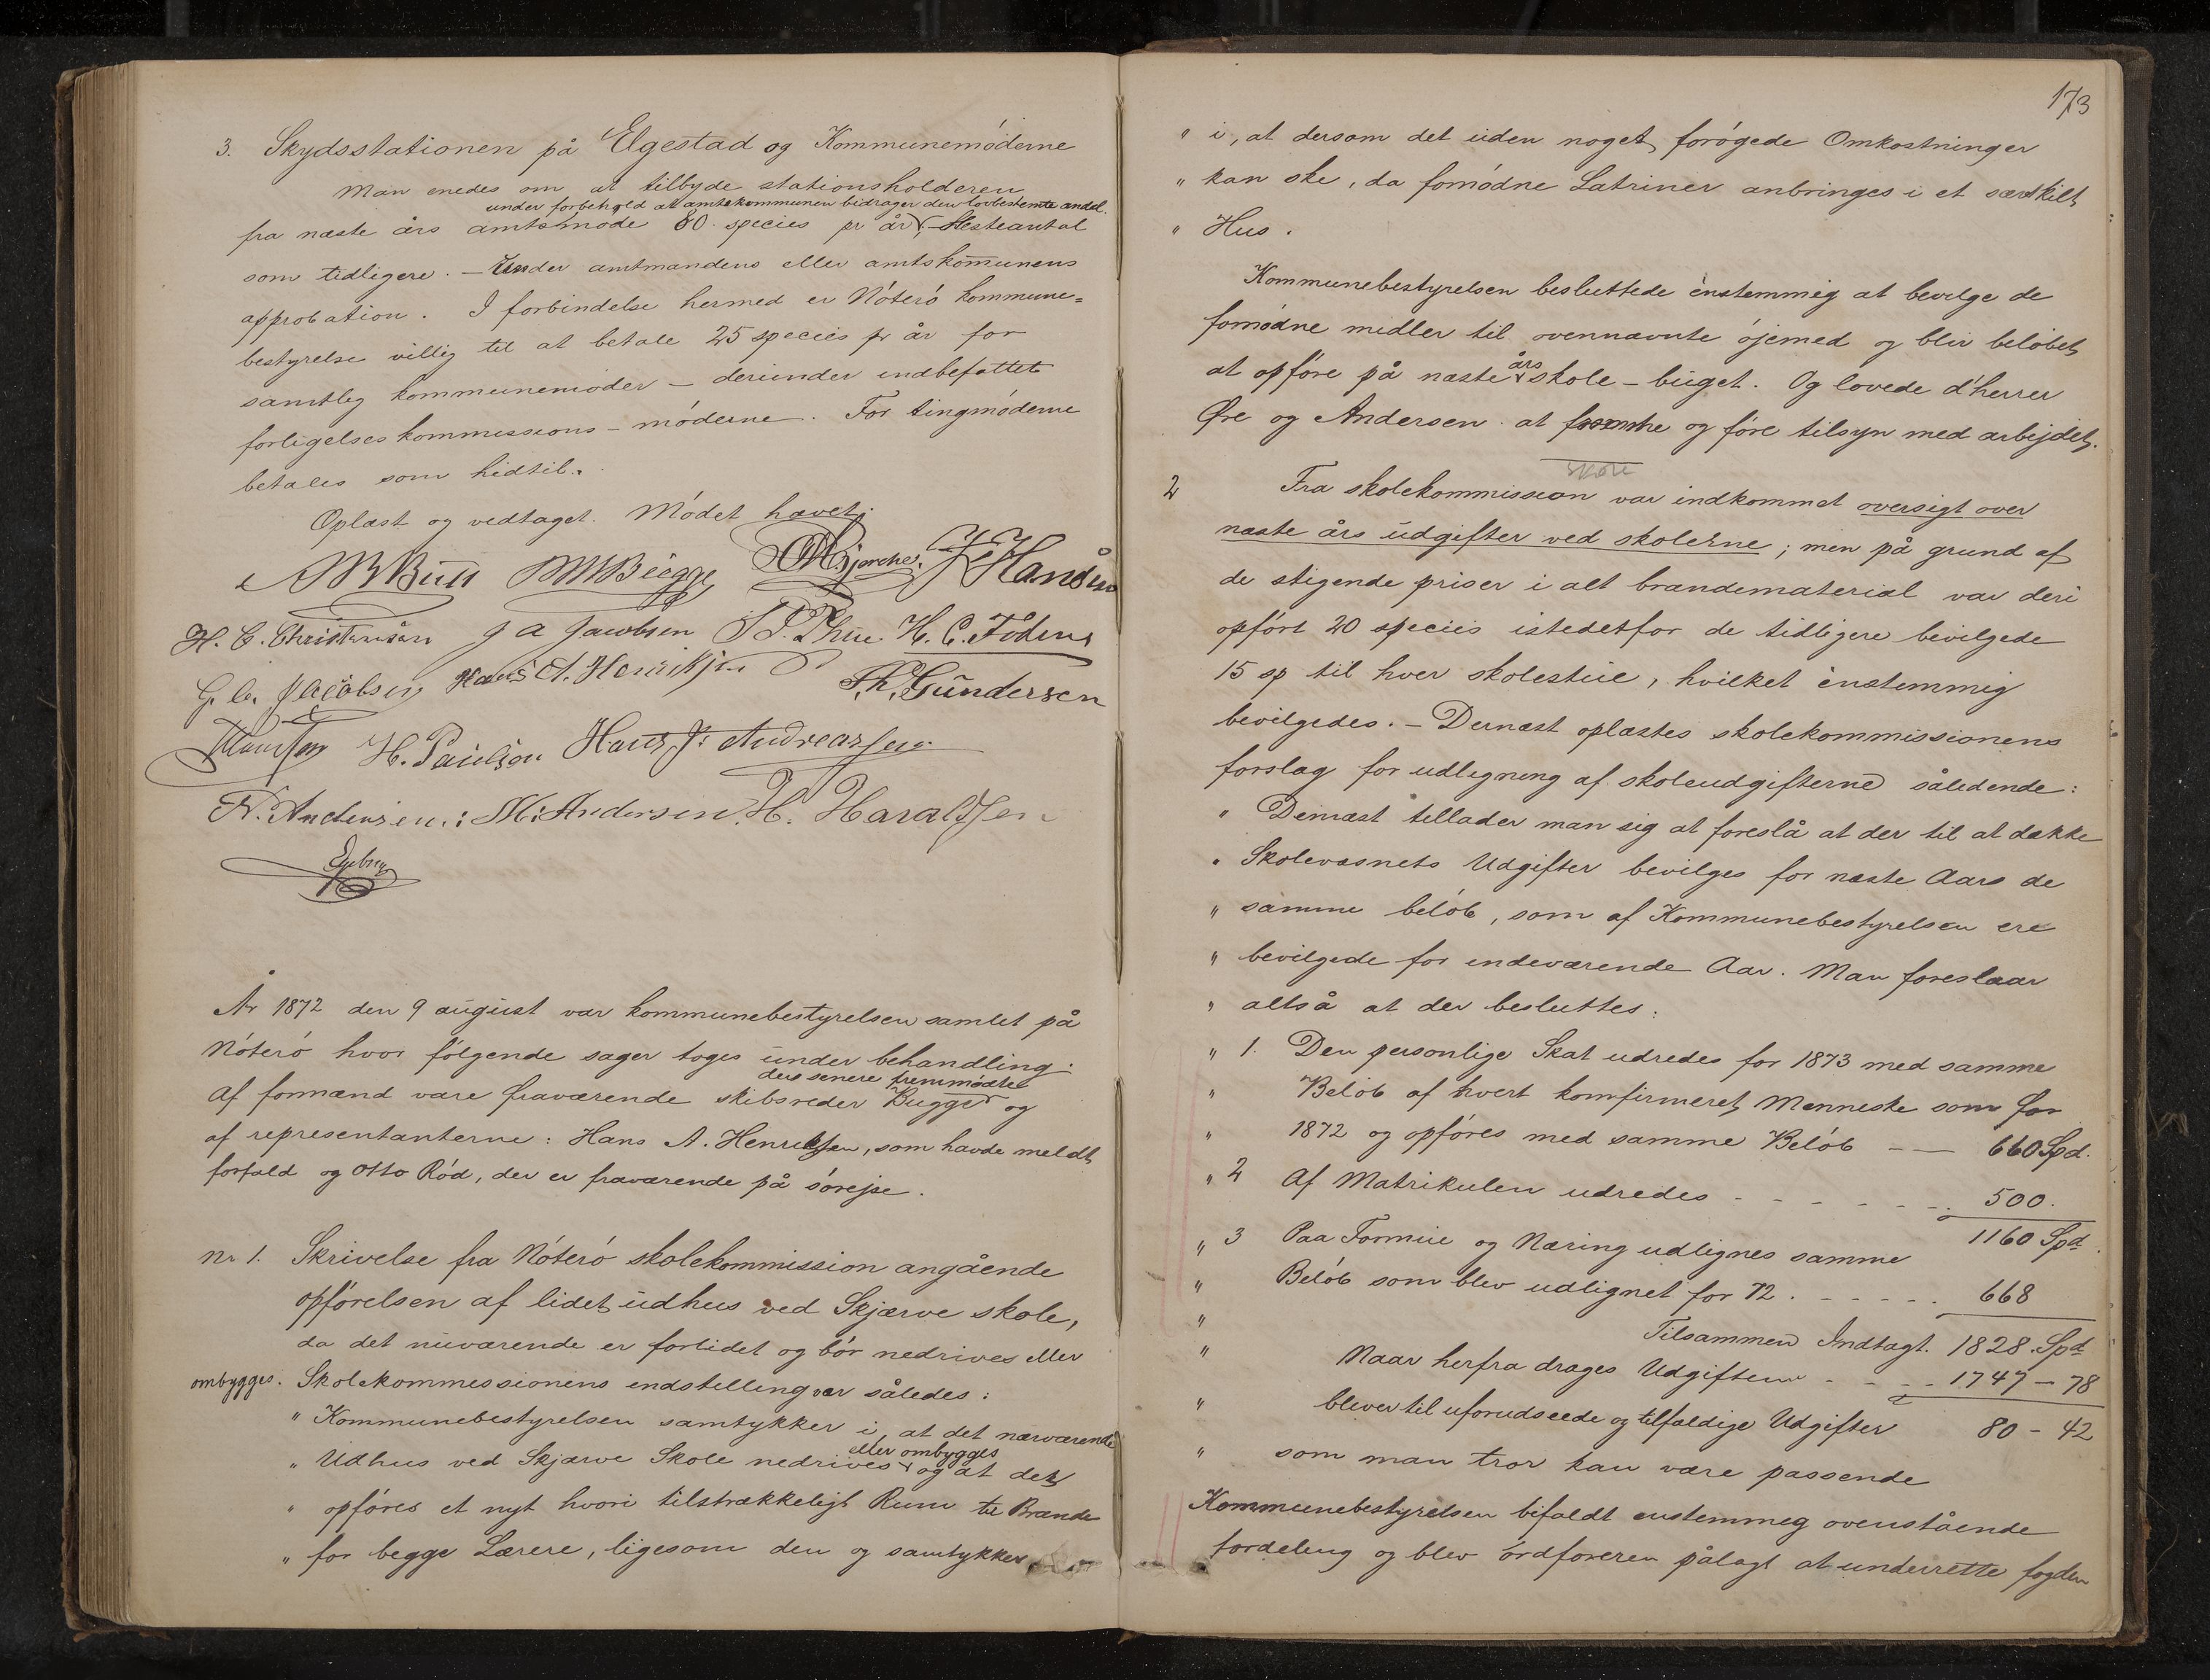 3. Skydsstationen på Elgestad og Kommunemøderne
Man enedes om at tilbyde stationsholderen
under forbehold at amtskommunen bidrager den lovbestemte andel.
fra næste års amtsmøde 80 species pr år, Hesteantal
som tidligere. — Under amtmandens eller amtskommunens
approbation. I forbindelse hermed er Nøterø kommune=
bestyrelse villig til at betale 25 species pr år for
samtlig kommunemøder — derunder indbefattet
forligelseskommissions-møderne. For tingmøderne
betales som hidtil.
Oplæst og vedtaget. Mødet hævet.
A B Bull M M Bugge Hansen
H. C. Christensen J A Jacobsen H. C. Foden
Jacobsen Hans A. Henriksen Gundersen
H. Paulsen Hans J: Andreassen
N. Andersen: M: Andersen. H. Haraldsen
År 1872 den 9 august var kommunebestyrelsen samlet på
Nøterø hvor følgende sager toges under behandling:
der senere fremmødte
Af formænd vare fraværende skibsreder Bugge og
af representanterne: Hans A. Henriksen, som havde meldt
forfald og Otto Rød, der er fraværende på sørejse.
nr 1. Skrivelse fra Nøterø skolekommission angående
opførelsen af lidet udhus ved Skjærve skole,
da det nuværende er forlidet og bør nedrives eller
ombygges. Skolekommissionens indstilling var således:
" Kommunebestyrelsen samtykker i, at det nærværende
eller ombygges
" Udhus ved Skjærve Skole nedrives og at det
" opføres et nyt hvori tilstrækkeligt Rum til Brænde
" for begge Lærere, ligesom den og samtykker
173
" i, at dersom det uden noget forøgede Omkostninger
" kan ske, da fornødne Latriner anbringes i et særskilt
" Hus.
Kommunebestyrelsen besluttede enstemmig at bevilge de
fornødne midler til ovennævnte øjemed og blir beløbet
års
at opføre på næste skole-buget. Og lovede d'herrer
Øre og Andersen at fremme og føre tilsyn med arbejdet.
skole
2 Fra skolekommission var indkommet oversigt over
næste års udgifter ved skolerne; men på grund af
de stigende priser i alt brændematerial var deri
opført 20 species istedetfor de tidligere bevilgede
15 sp til hver skolestue, hvilket enstemmig
bevilgedes. — Dernæst oplæstes skolekommissionens
forslag for udligning af skoleudgifterne således:
" Dernæst tillader man sig at foreslå at der til at dække
" Skolevæsnets Udgifter bevilges for næste Aars de
" samme beløb, som af Kommunebestyrelsen ere
" bevilgede for indeværende Aar. Man foreslaar
" altså at der besluttes:
" 1. Den personlige Skat udredes for 1873 med samme
" Beløb af hvert konfirmeret Menneske som for
" 1872 og opføres med samme Beløb — — 660 Spd.
" 2 Af Matrikulen udredes - - - - - - 500.
1160 Spd.
" 3 Paa Formue og Næring udlignes samme
" Beløb som blev udlignet for 72. - - - - - 668
" Tilsammen Indtægt. 1828. Spd
" Naar herfra drages Udgifterne - - - 1747 — 78
" bliver til uforudseede og tilfældige Udgifter 80 - 42
" som man tror kan være passende
Kommunebestyrelsen bifaldt enstemmeg ovenstående
fordeling og blev ordføreren pålagt at underrette fogden